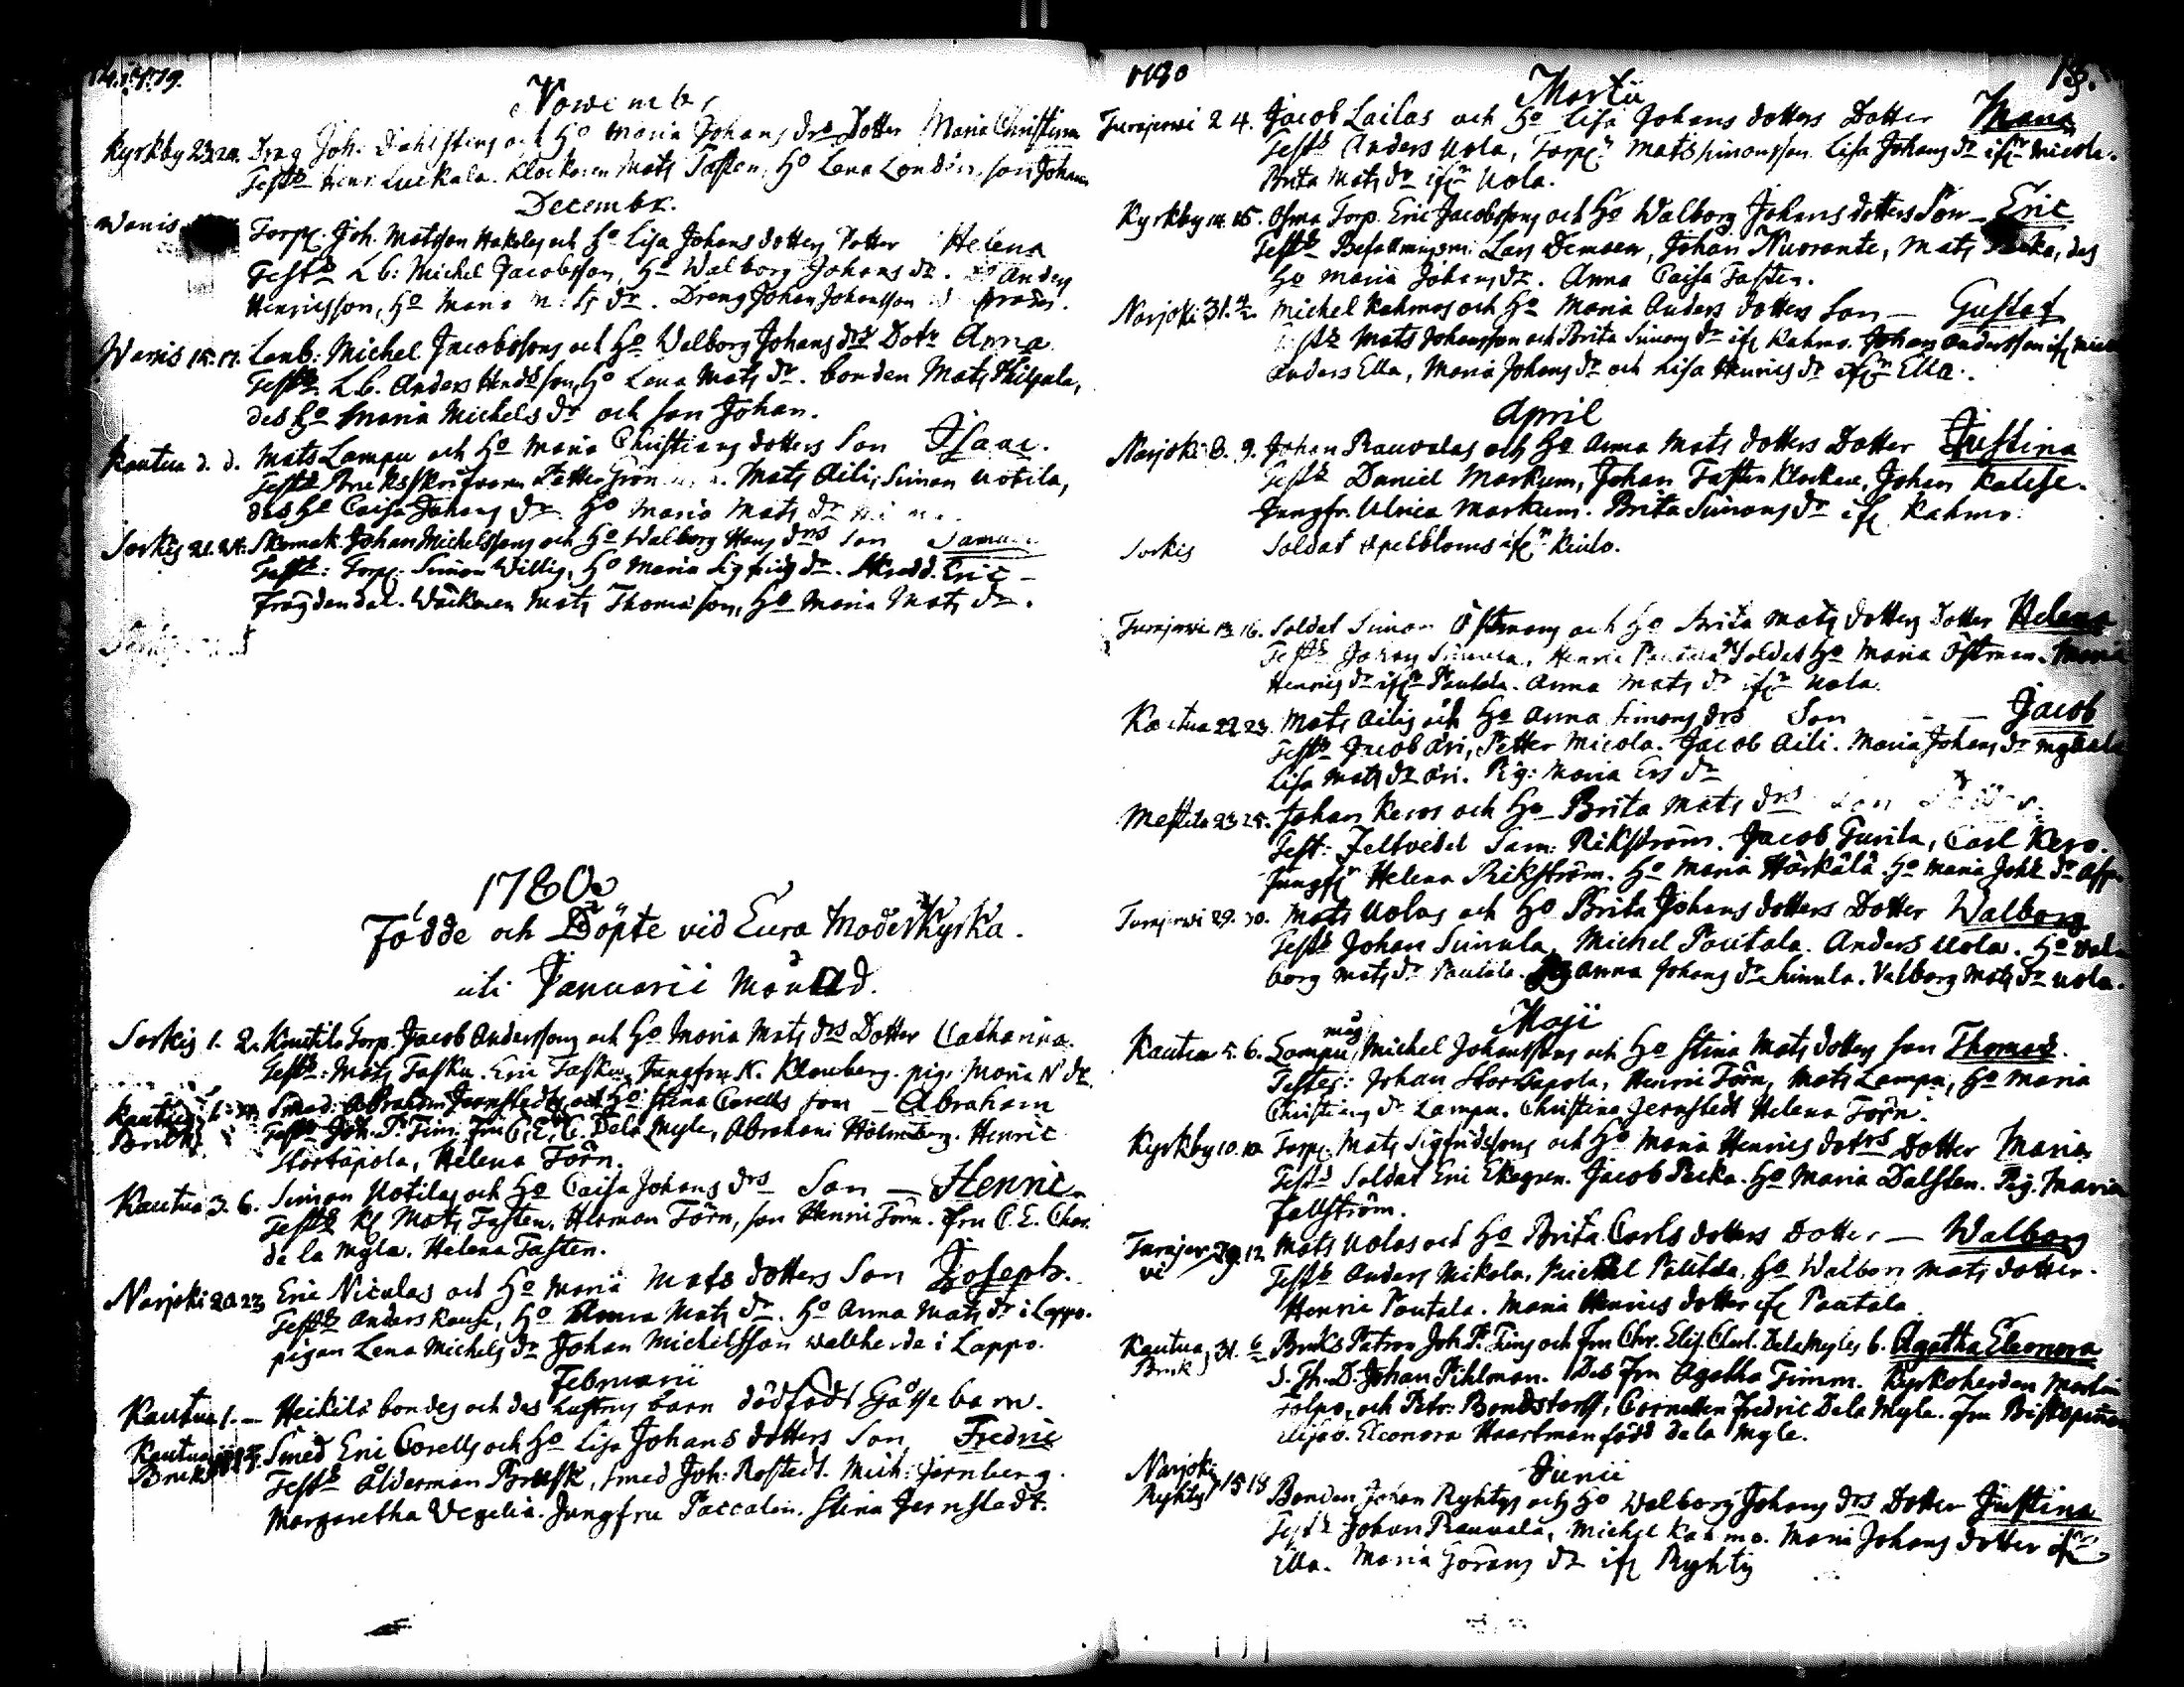 1779.
Novemb.
Kyrkby 23. 24. Dreng Joh. Dahlstens och Ho Maria Johans drs Dotter Maria Christina
Testb Henr. Luckala. Klockaren Mats Tasten, Ho Lena London, son Johan
Decembr.
Wanis Torp. Joh. Matsson Hakolas och Ho Lisa Johans dotters Dotter Helena
Testb Lb: Michel Jacobsson, Ho Walborg Johans dr. Anders
Henricsson, Ho Maria Mats dr. Dreng Johan Johansson
Wanis 15. 17. Lanb: Michel Jacobssons och Ho Walborg Johans drs Dotr Anna
Testb Lb. Anders Hendsson, Ho Lena Mats dr. bonden Mats Philpala,
des Ho Maria Michels dr och son Johan.
Kautua d. d. Mats Lampu och Ho Maria Christians dotters Son Isaac.
Testb Bruksskrifvaren Petter Mats Aili, Simon Uotila,
des Ho Caisa Johans dr. Ho Maria Mats dr
Sorkis 21. 24. Skomak. Johan Michelssons och Ho Walborg Hans drs Son Samuel
Testb: Torp. Simon Willig, Ho Maria Sigfrids dr. Skredd. Eric
Frögdendal. Wäckaren Mats Thomasson, Ho Maria Mats dr.
1780
Födde och Döpte vid Eura Moderkyrka.
uti Januarii Månad.
Sorkis 1. 2. Knutila Torp. Jacob Anderssons och Ho Maria Mats drs Dotter Catharina.
Testb: Mats Tasku. Eric Tasku. Jungfru K. Klouberg. pig. Maria N dr
Kautua Bruk Smed: Abraham Jernstedts och Ho Stina Corells son — Abraham
Testb Joh. P. Tim. Fru C. E. C. Dela Myle, Abraham Holmberg. Henric
Stortäpola, Helena Törn.
Kautua 3. 6. Simon Uotilas och Ho Caisa Johans drs Son — Henric.
Testb Kl Mats Tasten, Herman Törn, son Henric Törn. Fru C. E. Char.
de la Myla. Helena Tasten.
Narjoki 20 23 Eric Niculas och Ho Maria Mats dotters Son Joseph.
Testb Anders Kause, Ho Anna Mats dr. Ho Anna Mats dr i Lappo.
pigan Lena Michels dr Johan Michelsson wallherde i Lappo.
Februarii
Kautua 1. — Heikilä bondes och des hustrus barn dödfödt Gåsse barn.
Kautua Bruk Smed Eric Corells och Ho Lisa Johans dotters Son Fredric
Testb Ålderman Brusk, smed Joh: Rostedt. Mich: Jernberg.
Margaretha Vegelia. Jungfru Paccalen. Stina Jernstedt.
1780
13.
Martii
Turajerwi 2 4. Jacob Lailas och Ho Lisa Johans dotters Dotter Maria
Testb Anders Uola, Torp. Mats Simonsson. Lisa Johans dr ifr Micola.
Brita Mats dr ifr Uola.
Kyrkby 14. 15. Torp. Eric Jacobssons och Ho Walborg Johans dotters Son — Eric
Testb Befallningsm. Lars Demoen, Johan Nuorante, Mats Pecka, des
Ho Maria Johans dr. Anna Caisa Tasten.
Narjoki 31. 4/2 Michel Kahmas och Ho Maria Anders dotters Son — Gustaf
Testb Mats Johansson och Brita Simons dr ifr Kahmo. Johan Andersson ifr
Anders Ella, Maria Johans dr och Lisa Henrics dr ifr Ella.
April
Narjoki 8. 9. Johan Rauvolas och Ho Anna Mats dotters Dotter Justina
Testb Daniel Markum, Johan Tasten Klockare, Johan Kalese.
Jungfr. Ulrica Markum. Brita Simons dr ifr Kahmo.
Sorkis Soldat Apelbloms ifr Keulo.
Turajerwi 13. 16. Soldat Simon Östmans och Ho Brita Mats dotters Dotter Helena
Testb Johan Sinnula, Henric Pautala Soldat Ho Maria Östman. Maria
Henrics dr ifr Pautala. Anna Mats dr ifr Uola.
Kautua 22 23. Mats Ailis och Ho Anna Simons drs Son — Jacob
Testb Jacob Äri, Petter Micola. Jacob Aili. Maria Johans dr
Lisa Mats dr Äri. Pig: Maria Ers dr
Mestila 23 25. Johan Keros och Ho Brita Mats drs Son
Test: Feltvebel Sam: Rikström. Jacob Turila, Carl Kero.
Jungfr Helena Rikström. Ho Maria Härkälä. Ho Maria Joh dr
Turajerwi 29. 30. Mats Uolas och Ho Brita Johans dotters Dotter Walborg
Testb Johan Sinnula, Michel Pautala. Anders Uola. Ho Wal-
borg Mats dr Pautala. Anna Johans dr Sinnula. Valborg Mats dr Uola.
Maji
Kautua 5. 6. Lampu måg Michel Johanssons och Ho Stina Mats dotters son Thomas.
Testes: Johan Stortäpola, Henric Törn, Mats Lampu, Ho Maria
Christians dr Lampu. Christina Jernstedt Helena Törn.
Kyrkby 10. 10. Torp. Mats Sigfridssons och Ho Maria Henrics dotrs Dotter Maria
Testb Soldat Eric Ekegren. Jacob Pecka. Ho Maria Dalsten. Pig. Maria
Fallström.
Turajerwi 12 Mats Uolas och Ho Brita Carls dotters Dotter — Walborg
Testb Anders Mikola, Michel Pautala, Ho Walborg Mats dotter.
Henric Pautala. Maria Henrics dotter ifr Pautala
Kautua Bruk 31. 6 Bruks Patron Joh. P. Tims och Fru Chr. Elis. Charl. Dela Myles b. Agatha Eleonora
S. Th. D. Johan Pihlman. Des Fru Agatha Timm. Kyrkoherden Martin
Tolpo, och Petr: Bondstorff, Cornetten Fredric Dela Myle. Fru Biskopinnan
Elisab. Eleonora Haartman född Dela Myle.
Junii
Narjoki Ryhty 15 18 Bonden Johan Ryhtys och Ho Walborg Johans drs Dotter Justina
Testb Johan Rauvala, Michel Kahmo. Maria Johans dotter ifr
Ella. Maria Görans dr ifr Ryhty